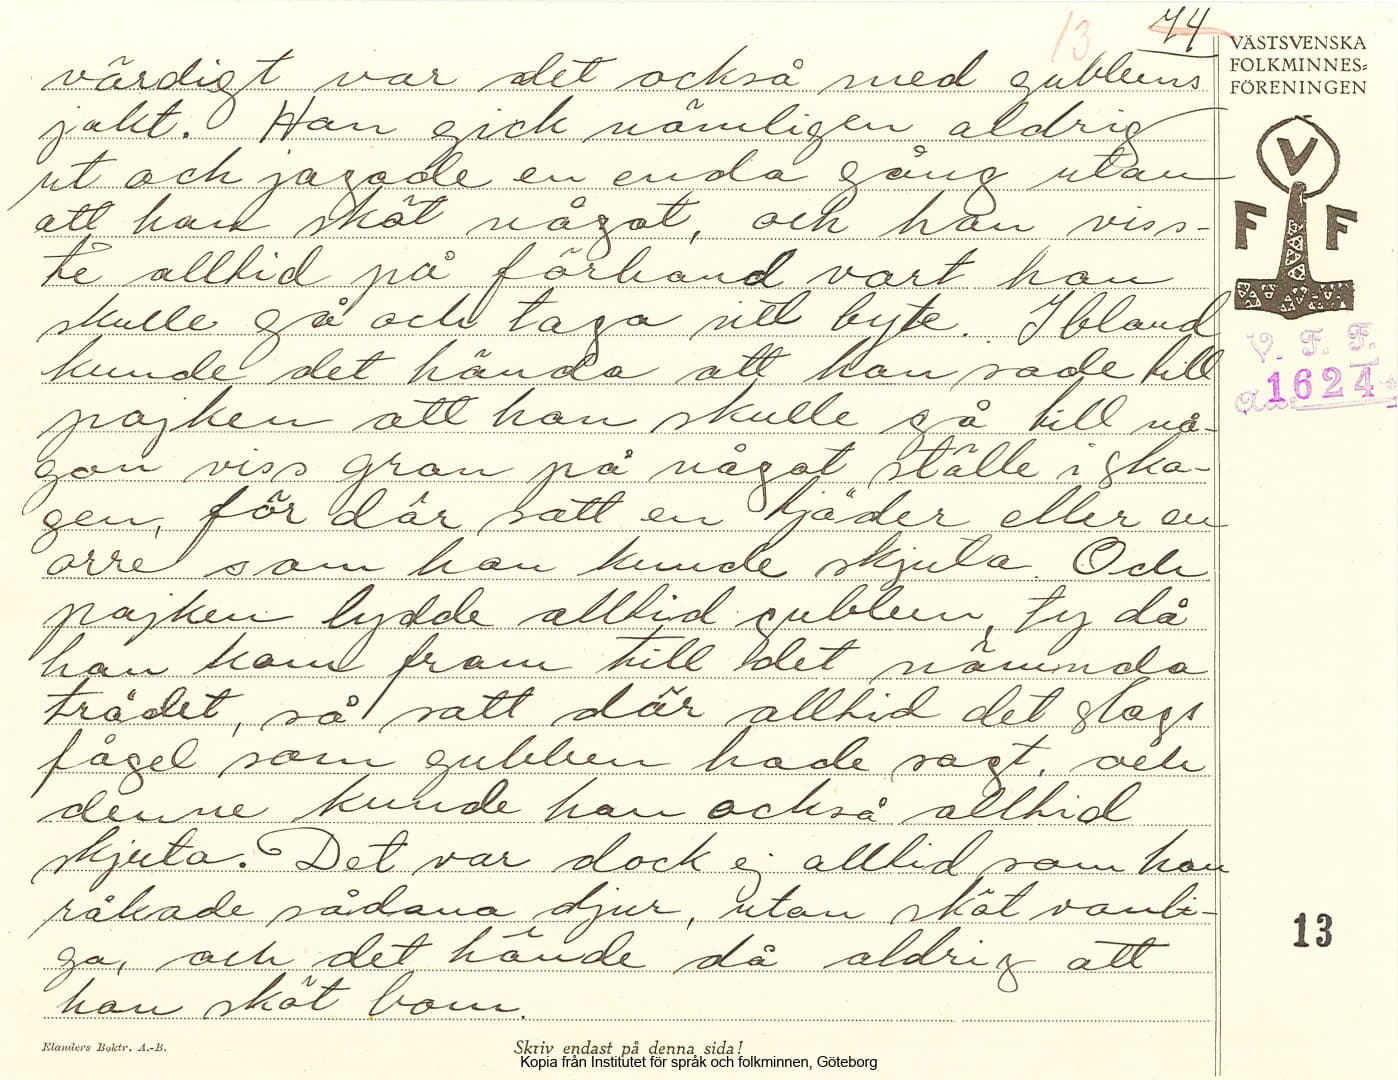 13 74
VÄSTSVENSKA
FOLKMINNES-
FÖRENINGEN
V
F F
V. F. F.
1624
värdigt var det också med gubbens
jakt. Han gick nämligen aldrig
ut och jagade en enda gång utan
att han sköt något, och han viss-
te alltid på förhand vart han
skulle gå och taga sitt byte. Ibland
kunde det hända att han sade till
pojken att han skulle gå till nå-
gon viss gran på något ställe i sko-
gen, för där satt en tjäder eller en
orre som han kunde skjuta. Och
pojken lydde alltid gubben, ty då
han kom fram till det nämnda
trädet, så satt där alltid det slags
fågel som gubben hade sagt, och
denne kunde han också alltid
skjuta. Det var dock ej alltid som han
råkade sådana djur, utan sköt vanli-
ga, och det hände då aldrig att
han sköt bom.
13
Elanders Boktr. A.-B.
Skriv endast på denna sida!
Kopia från Institutet för språk och folkminnen, Göteborg